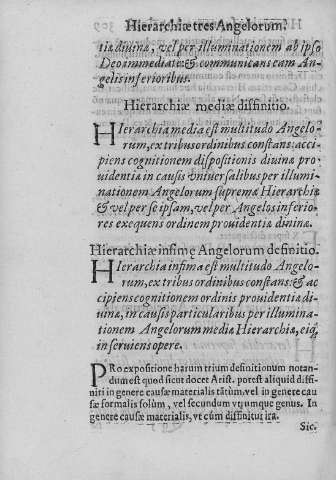 Hierarchiæ tres Angelorum?
tiæ diuinæ, vel per illuminationem ab ipso
Deo immediatè: & communicans eam An-
gelis inferioribus.
Hierarchiæ mediæ diffinitio.
HIerarchia media est multitudo Angelo-
rum, ex tribus ordinibus constans: acci-
piens cognitionem dispositionis diuinæ pro
uidentiæ in causis vniuersalibus per illumi-
nationem Angelorum supremæ Hierarchiæ
& vel per se ipsam, vel per Angelos inferio-
res exequens ordinem prouidentiæ diuinæ.
Hierarchiæ infimę Angelorum definitio.
HIerarchia infima est multitudo Angelo-
rum, ex tribus ordinibus constans: & ac
cipiens cognitionem ordinis prouidentiæ di-
uinæ, in causis particularibus per illumina-
tionem Angelorum mediæ Hierarchiæ, eiq;
in seruiens opere.
PRo expositione harum trium definitionum notan-
dum est quod sicut docet Arist. potest aliquid diffi-
niri in genere causæ materialis tãtùm, vel in genere cau
sæ formalis solùm, vel secundum vtrumque genus. In
genere causæ materialis, vt cùm diffinitur ira.
Sic.